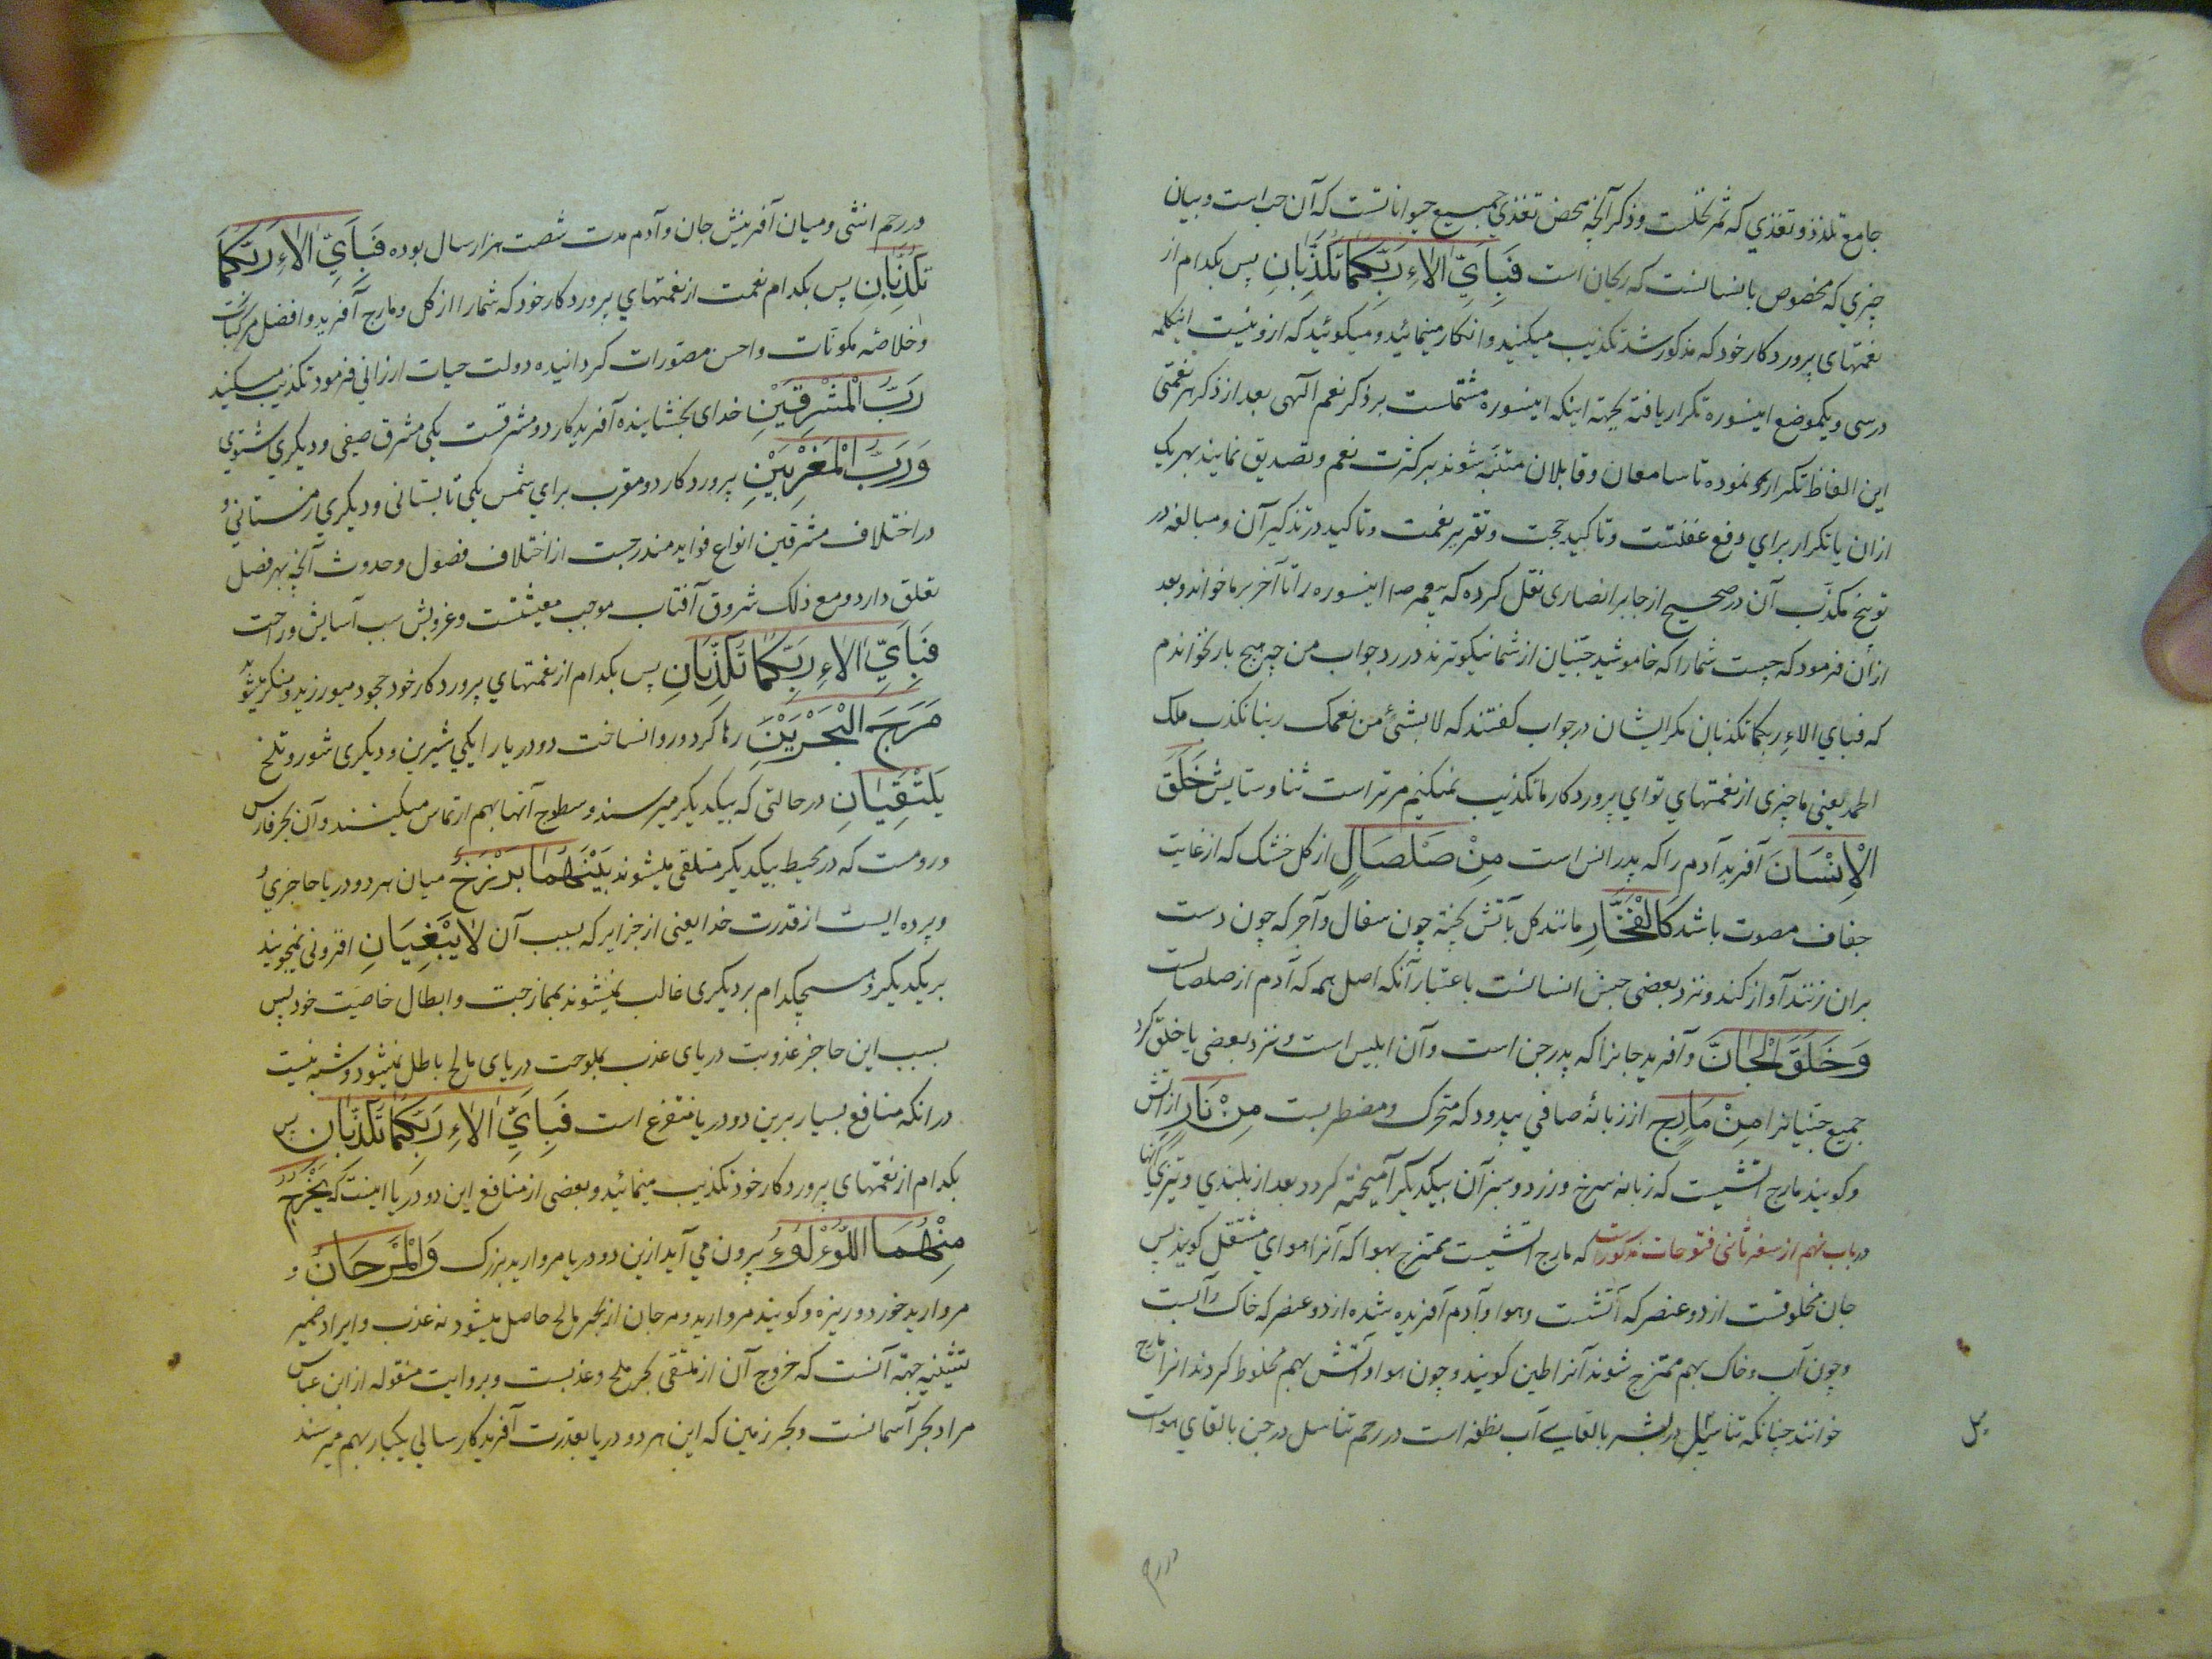 جامع تلذذ و تغذی که ثمر نخلست و ذکر آنچه محض تغذی جمیع حیواناتست که آن حب است و بیان
چیزی که مخصوص بانسانست که ریحان است فَبِاَيِّ اٰلاٰءِ رَبِّكُمٰا تُكَذِّبٰانِ پس بکدام از
نعمتهای پروردکار خود که مذکور شد تکذیب میکنید و انکار مینمائید و میکوئید که ازو نیست اینکلمه
در سی و یکموضع اینسوره تکرار یافته بجهة اینکه اینسوره مشتملست بر ذکر نعم الهی بعد از ذکر هر نعمتی
این الفاظ تکرار نموده تا سامعان و قابلان متنبّه شوند بر کثرت نعم و تصدیق نمایند بهر یک
ازان یا تکرار برای دفع غفلتست و تاکید حجت و تقریر نعمت و تاکید در تذکیر آن و مبالغه در
توبیخ مکذّب آن در صحیح از جابر انصاری نقل کرده که پیغمبر ص اینسوره را تا آخر بر ما خواند و بعد
ازان فرمود که چیست شما را که خاموشید جنّیان از شما نیکوترند در رد جواب من چه هیچ بار نخواندم
که فبای الاء ربکما تکذبان مکر ایشان در جواب کفتند که لا بشیء من نعمک ربنا نکذب فلک
الحمد یعنی ما چیزی از نعمتهای تو ای پروردکار ما تکذیب نمیکنیم مر تراست ثنا و ستایش خَلَقَ
الْاِنْسَانَ آفرید آدم را که پدر انس است مِنْ صَلْصَالٍ از کل خشک که از غایت
جفاف مصوت باشد كَالْفَخَّارِ مانند کل بآتش پخته چون سفال و آجر که چون دست
بران زنند آواز کند و نزد بعضی جنس انسانست باعتبار آنکه اصل همه که آدم از صلصالست
وَ خَلَقَ الْجٰانَّ و آفرید جانرا که پدر جن است و آن ابلیس است و نزد بعضی یا خلق کرد
جمیع جنّیانرا مِنْ مَارِجٍ از زبانۀ صافی بیدود که متحرک و مضطربست مِنْ نَارٍ از آتش
و کویند مارج آتشیست که زبانه سرخ و زرد و سبز آن بیکدیکر آمیخته کردد بعد از بلندی و تیزی آنها
در باب نهم از سفر ثانی فتوحات مذکور است که مارج آتشیست ممتزج بهوا که آنرا هوای مشتعل کویند پس
جان مخلوقست از دو عنصر که آتشست و هوا و آدم آفریده شده از دو عنصر که خاک و آبست
و چون آب و خاک بهم ممتزج شوند آنرا طین کویند و چون هوا و آتش بهم مخلوط کردند انرا مارج
خوانند چنانکه تناسل در بشر بالقای آب نطفه است در رحم تناسل در جن بالقای هواست
در رحم
در رحم انثی و میان آفرینش جان و آدم مدت شصت هزار سال بوده فَبِاَيِّ اٰلاٰءِ رَبِّكُمَا
تُكَذِّبَانِ پس بکدام نعمت از نعمتهای پروردکار خود که شما را از کل و مارج آفرید و افضل مرکبات
و خلاصۀ مکونات و احسن مصورات کردانیده دولت حیات ارزانی فرمود تکذیب میکنید
رَبُّ الْمَشْرِقَيْنِ خدای بخشاینده آفریدکار دو مشرقست یکی مشرق صیفی و دیکری شتوی
وَ رَبُّ الْمَغْرِبَيْنِ پروردکار دو مغرب برای شمس یکی تابستانی و دیکری زمستانی و
در اختلاف مشرقین انواع فواید مندرجست از اختلاف فصول و حدوث آنچه بهر فصل
تعلق دارد و مع ذلک شروق آفتاب موجب معیشتست و غروبش سبب آسایش و راحت
فَبِاَيِّ اٰلاٰءِ رَبِّكُمٰا تُكَذِّبٰانِ پس بکدام از نعمتهای پروردکار خود جحود میورزید و منکر میشوید
مَرَجَ الْبَحْرَيْنِ رها کرد و روانساخت دو دریا را یکی شیرین و دیکری شور و تلخ
يَلْتَقِيٰانِ در حالتی که بیکدیکر میرسند و سطوح آنها بهم ارتماس میکنند و آن بحر فارس
و رومست که در محیط بیکدیکر متلقی میشوند بَيْنَهُمٰا بَرْزَخٌ میان هر دو دریا حاجزی
و پرده ایست از قدرت خدا یعنی از جزایر که بسبب آن لٰا يَبْغِيَانِ افزونی نمیجویند
بر یکدیکر و هیچکدام بر دیکری غالب نمیشوند بممازجت و ابطال خاصیت خود پس
بسبب این حاجز عذوبت دریای عذب بملوحت دریای مالح باطل نمیشود و شبه نیست
در انکه منافع بسیار برین دو دریا متفرع است فَبِاَيِّ اٰلاٰءِ رَبِّكُمٰا تُكَذِّبٰانِ پس
بکدام از نعمتهای پروردکار خود تکذیب مینمائید و بعضی از منافع این دو دریا اینست که يَخْرُجُ
مِنْهُمَا اللُّؤْلُؤُ بیرون می آید ازین دو دریا مروارید بزرک وَ الْمَرْجَانُ و
مروارید خورد و ریزه و کویند مروارید و مرجان از بحر مالح حاصل میشود نه عذب و ایراد ضمیر
تثنیه جهة آنست که خروج آن از ملتقی بحر ملح و عذبست و بروایت منقوله از ابن عباس
مراد بحر آسمانست و بحر زمین که این هر دو دریا بقدرت آفریدکار سالی یکبار بهم میرسند